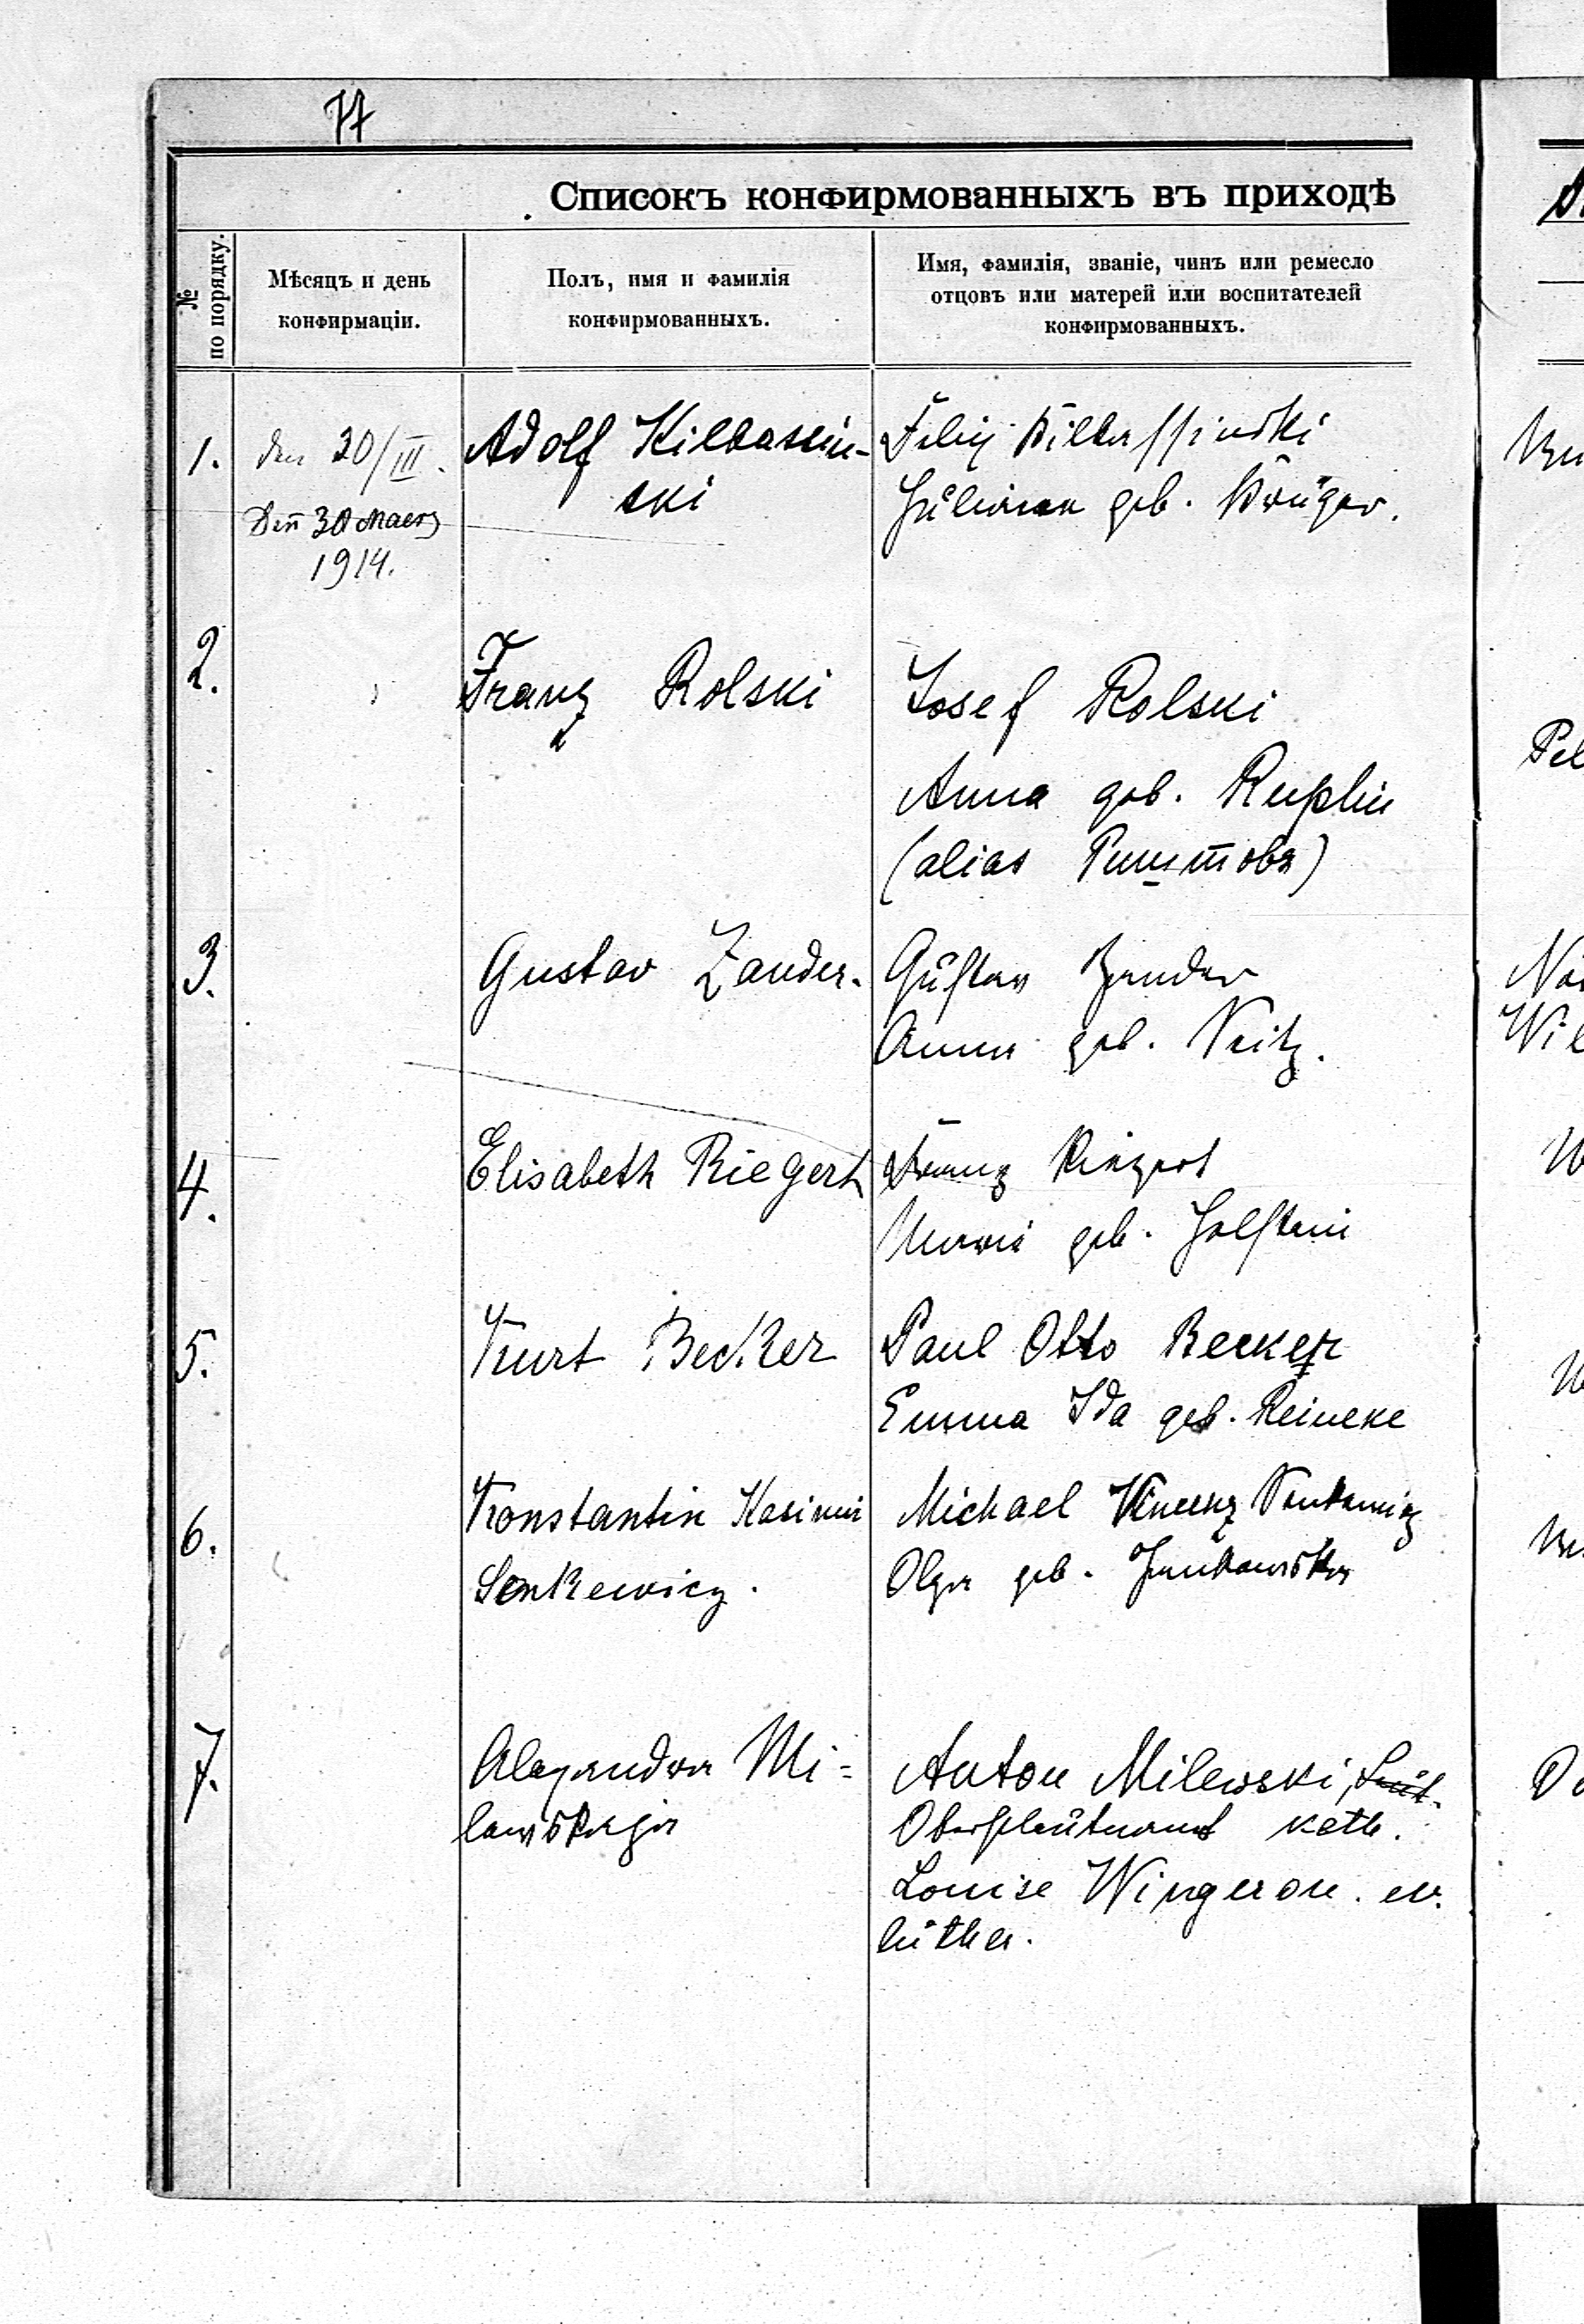 77
Списокъ конфирмованныхъ въ приходѣ
№ по порядку.
Мѣсяцъ и день конфирмаціи.
Полъ, имя и фамилія конфирмованныхъ.
Имя, фамилія, званіе, чинъ или ремесло отцовъ или матерей или воспитателей конфирмованныхъ.
1.
den 30/III.
Den 30 Maerz
1914.
Adolf Kilbassin-
ski
Kilbassinski
geb. Krüger.
2.
Franz Rolski
Josef Rolski
Anna geb.
(alias
3.
Gustav Zander.
Gustav Zander
Anna geb. Veitz.
4.
Elisabeth Riegert
Franz Riegert
Maria geb. Holstein
5.
Kurt Becker
Paul Otto Becker
Emma Ida geb. Reineke
6.
Konstantin Kasimir
Senkewicz.
Michael Vincenz Senkewicz
Olga geb. Jankowska
7.
Alexandra Mi=
lewskaja
Anton Milewski,
kath.
Louise Wingeron. ev.
luther.